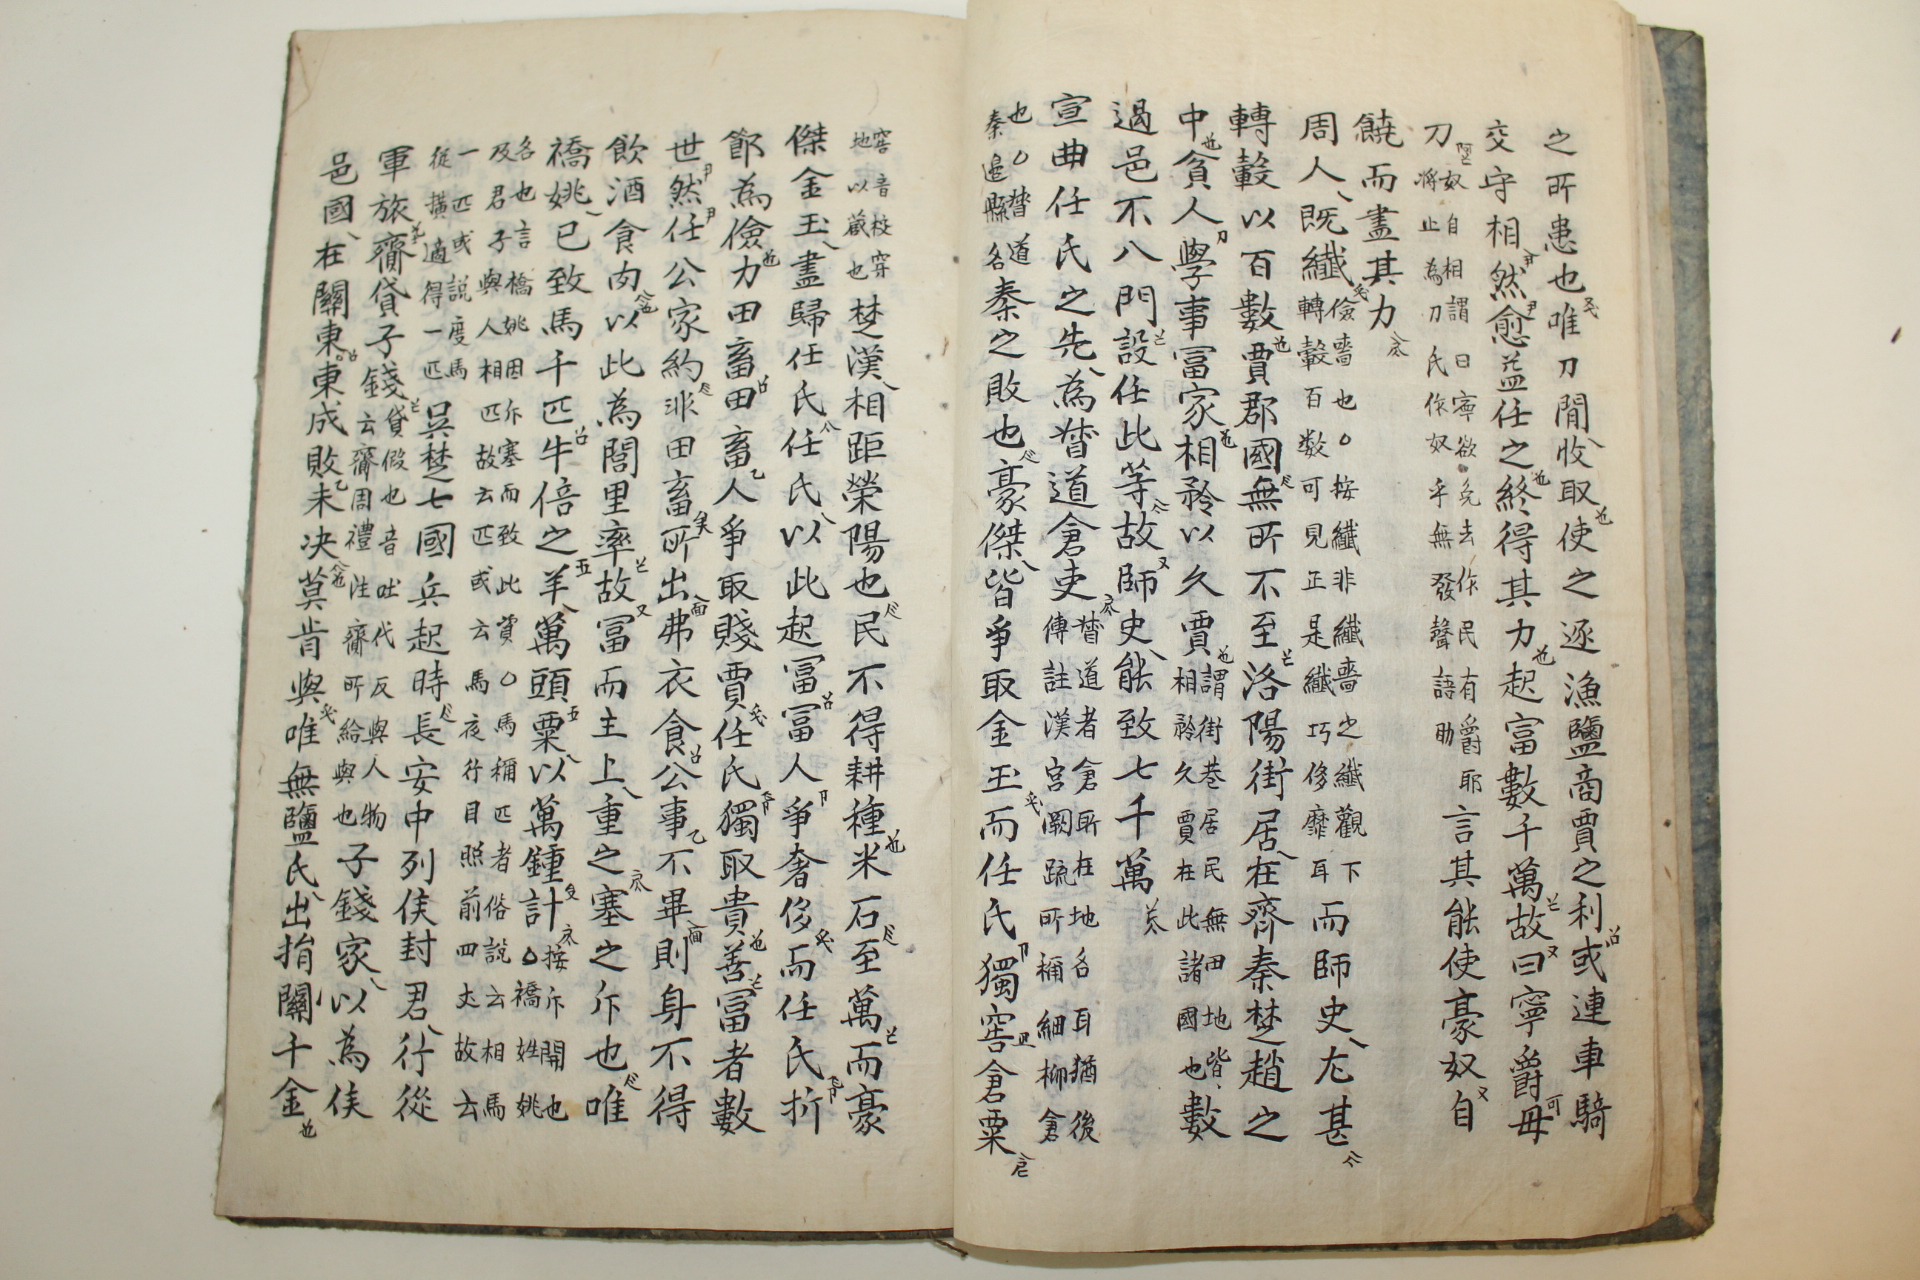 之所患也唯刀閒收取使之逐漁鹽商賈之利或連車騎
交守相然愈益任之終得其力起富數千萬故曰寧爵毋
刀奴自相謂曰寧欲免去作民有爵耶將止為刀氏作奴乎無發聲語助言其能使豪奴自
饒而盡其力
周人既纖儉嗇也○按纖非纖嗇之纖觀下轉轂百数可見正是纖巧侈靡耳而師史尤甚
轉轂以百數賈郡國無所不至洛陽街居在齊秦楚趙之
中貧人學事冨家相矜以久賈謂街巷居民無田地皆相矜久賈在此諸國也數
過邑不入門設任此等故師史能致七千萬
宣曲任氏之先為督道倉吏督道者倉所在地名耳猶後傳註漢宮闕疏所稱細柳倉
也○督道秦邉縣名秦之敗也豪傑皆爭取金玉而任氏獨窖倉粟
窖音校穿地以藏也楚漢相距榮陽也民不得耕種米石至萬而豪
傑金玉盡歸任氏任氏以此起冨冨人爭奢侈而任氏折
節為儉力田畜田畜人爭取賤賈任氏獨取貴善冨者數
世然任公家約非田畜所出弗衣食公事不畢則身不得
飲酒食肉以此為閭里率故冨而主上重之塞之斥也唯
橋姚已致馬千匹牛倍之羊萬頭粟以萬鍾計按斥開也○橋姓姚
各也言橋姚因斥塞而致此資○馬稱匹者俗說云相馬及君子與人相匹故云匹或云馬夜行目照前四丈故云
一匹或說度馬從橫適得一匹吳楚七國兵起時長安中列侯封君行從
軍旅齎貸子錢貸假也音吐代反與人物云齎周禮注齎所給與也子錢家以為侯
邑國在關東東成敗未决莫肯與唯無鹽氏出捐關千金